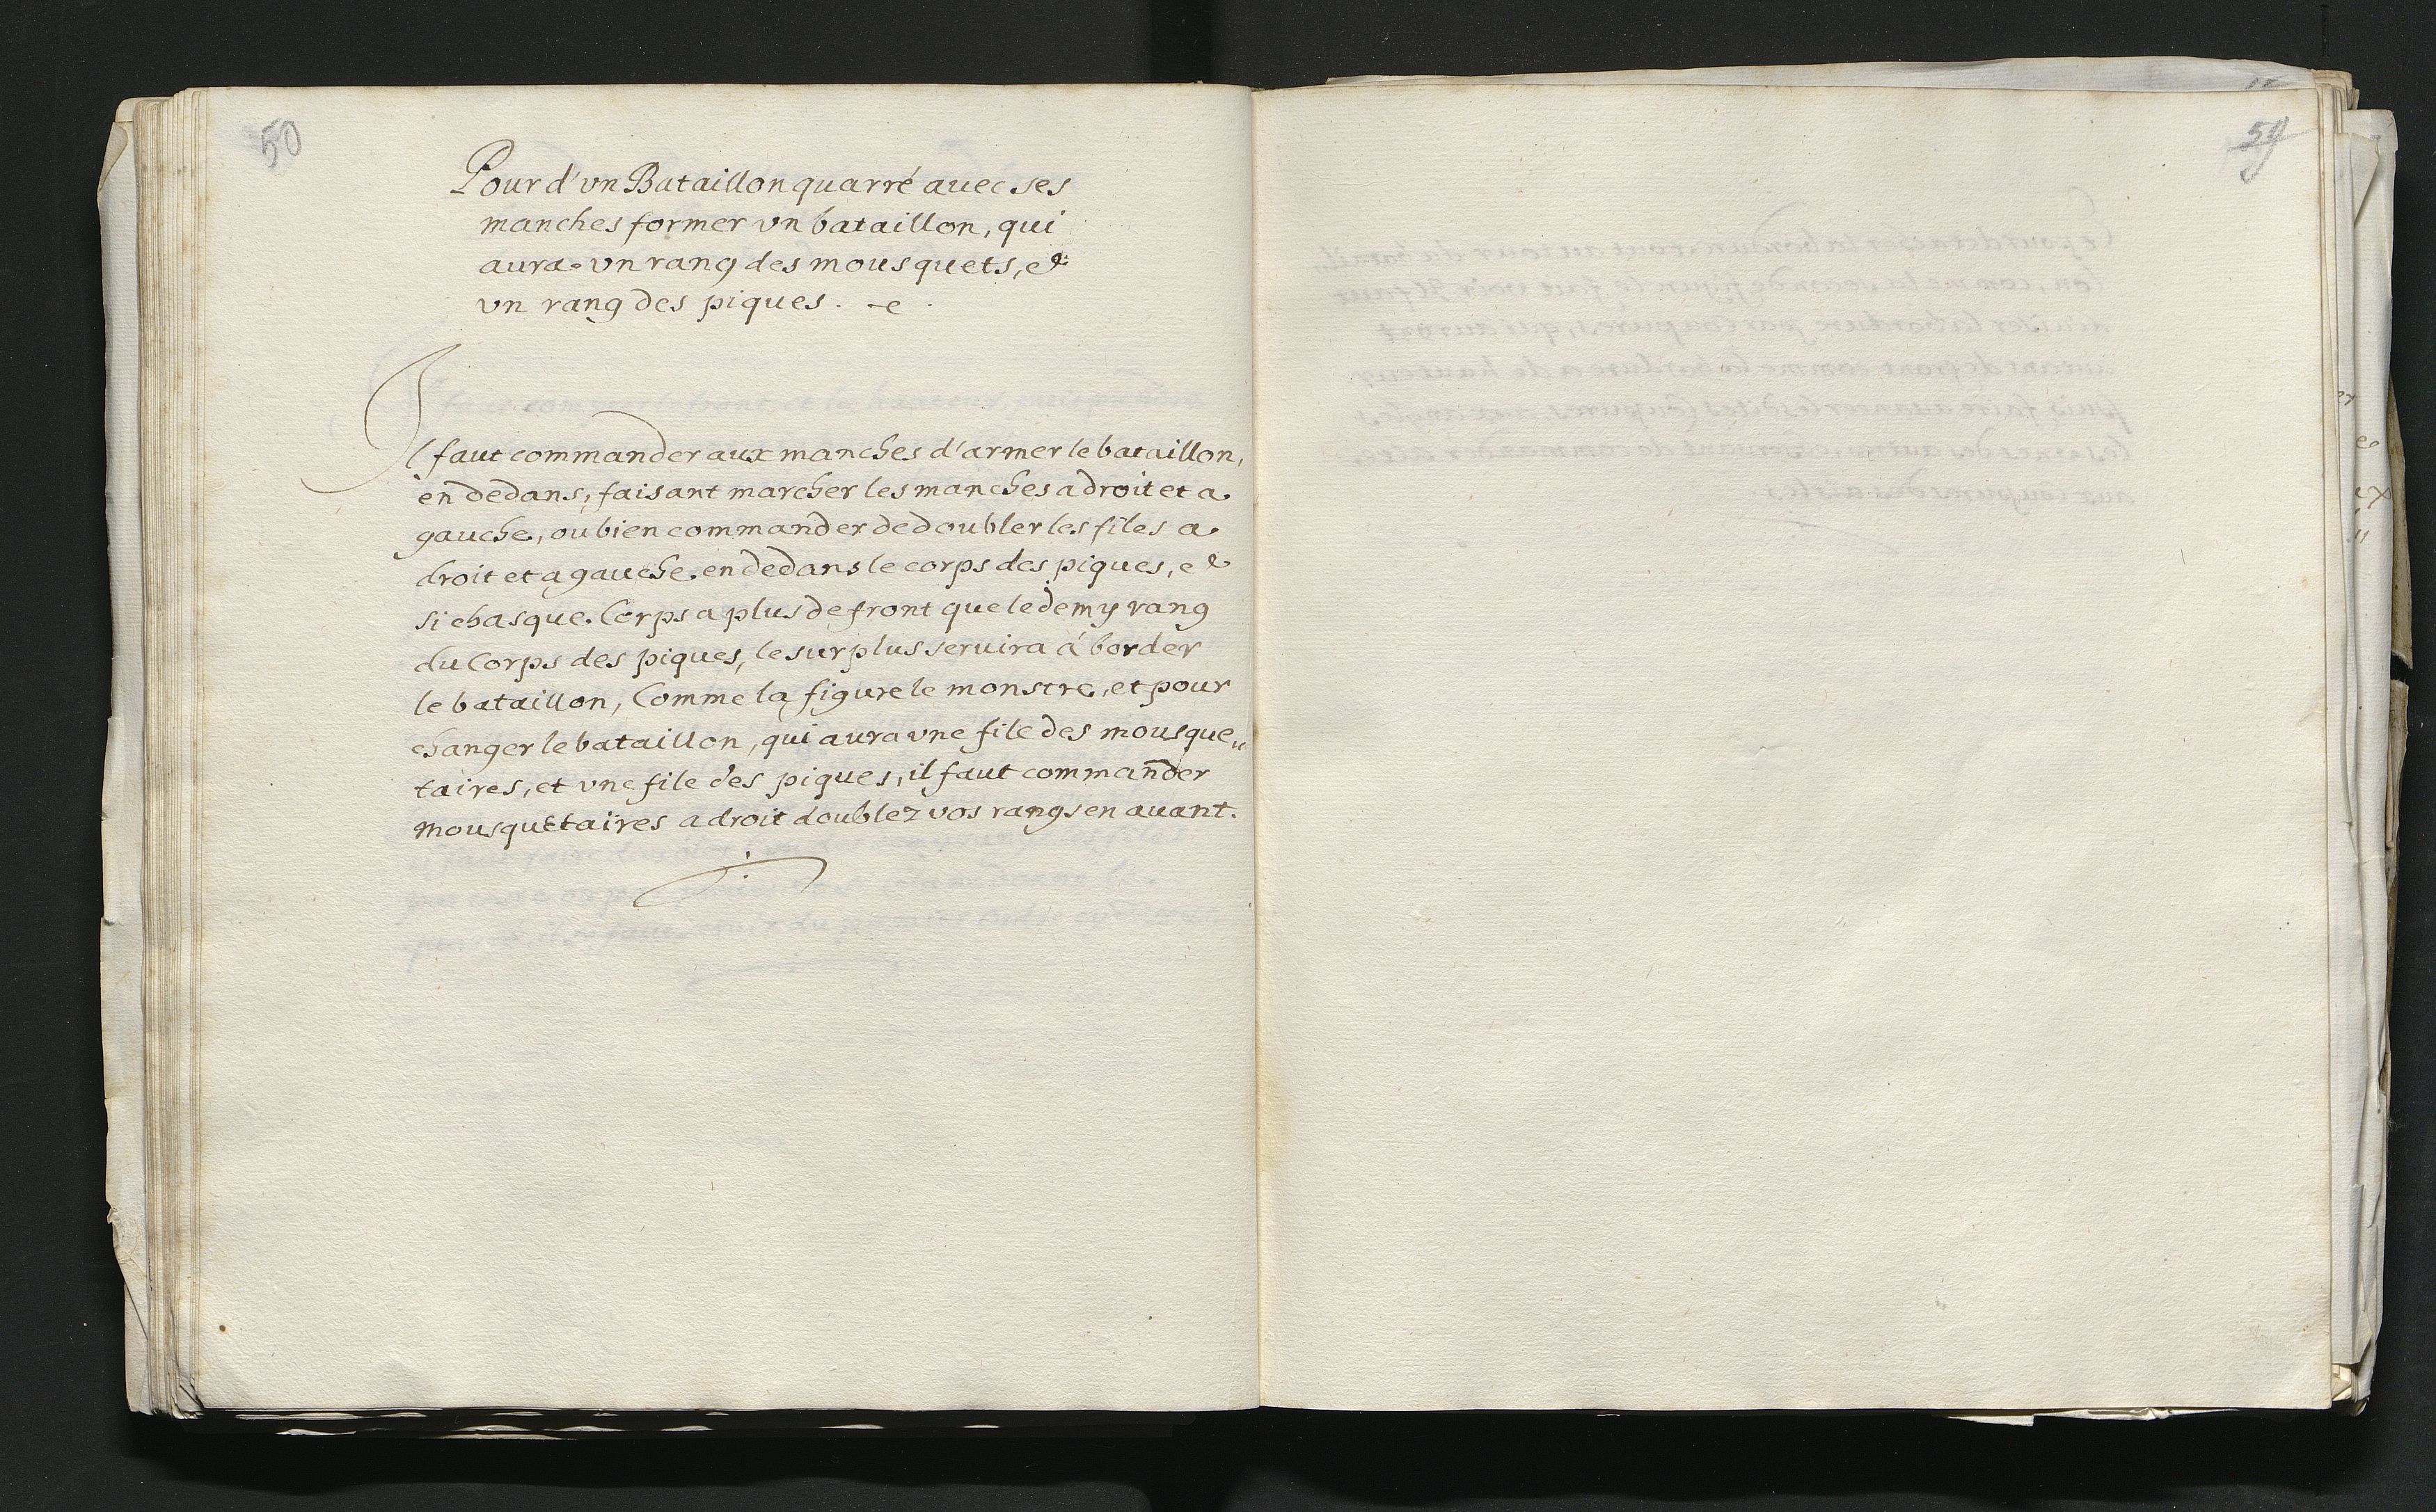 50
Pour d'vn Bataillon quarré auec ses
manches former vn bataillon, qui
aura vn rang des mousquets, et
vn rang des piques.
Il faut commander aux manches d'armer le bataillon,
en dedans, faisant marcher les manches a droit et a
gauche, ou bien commander de doubler les files a
droit et a gauche en dedans le corps des piques, et
si chasque Corps a plus de front que le demy rang
du Corps des piques, le surplus seruira á border
le bataillon, Comme la figure le monstre, et pour
changer le bataillon, qui aura vne file des mousque„
taires, et vne file des piques, il faut commander
mousquetaires a droit doublez vos rangs en auant.